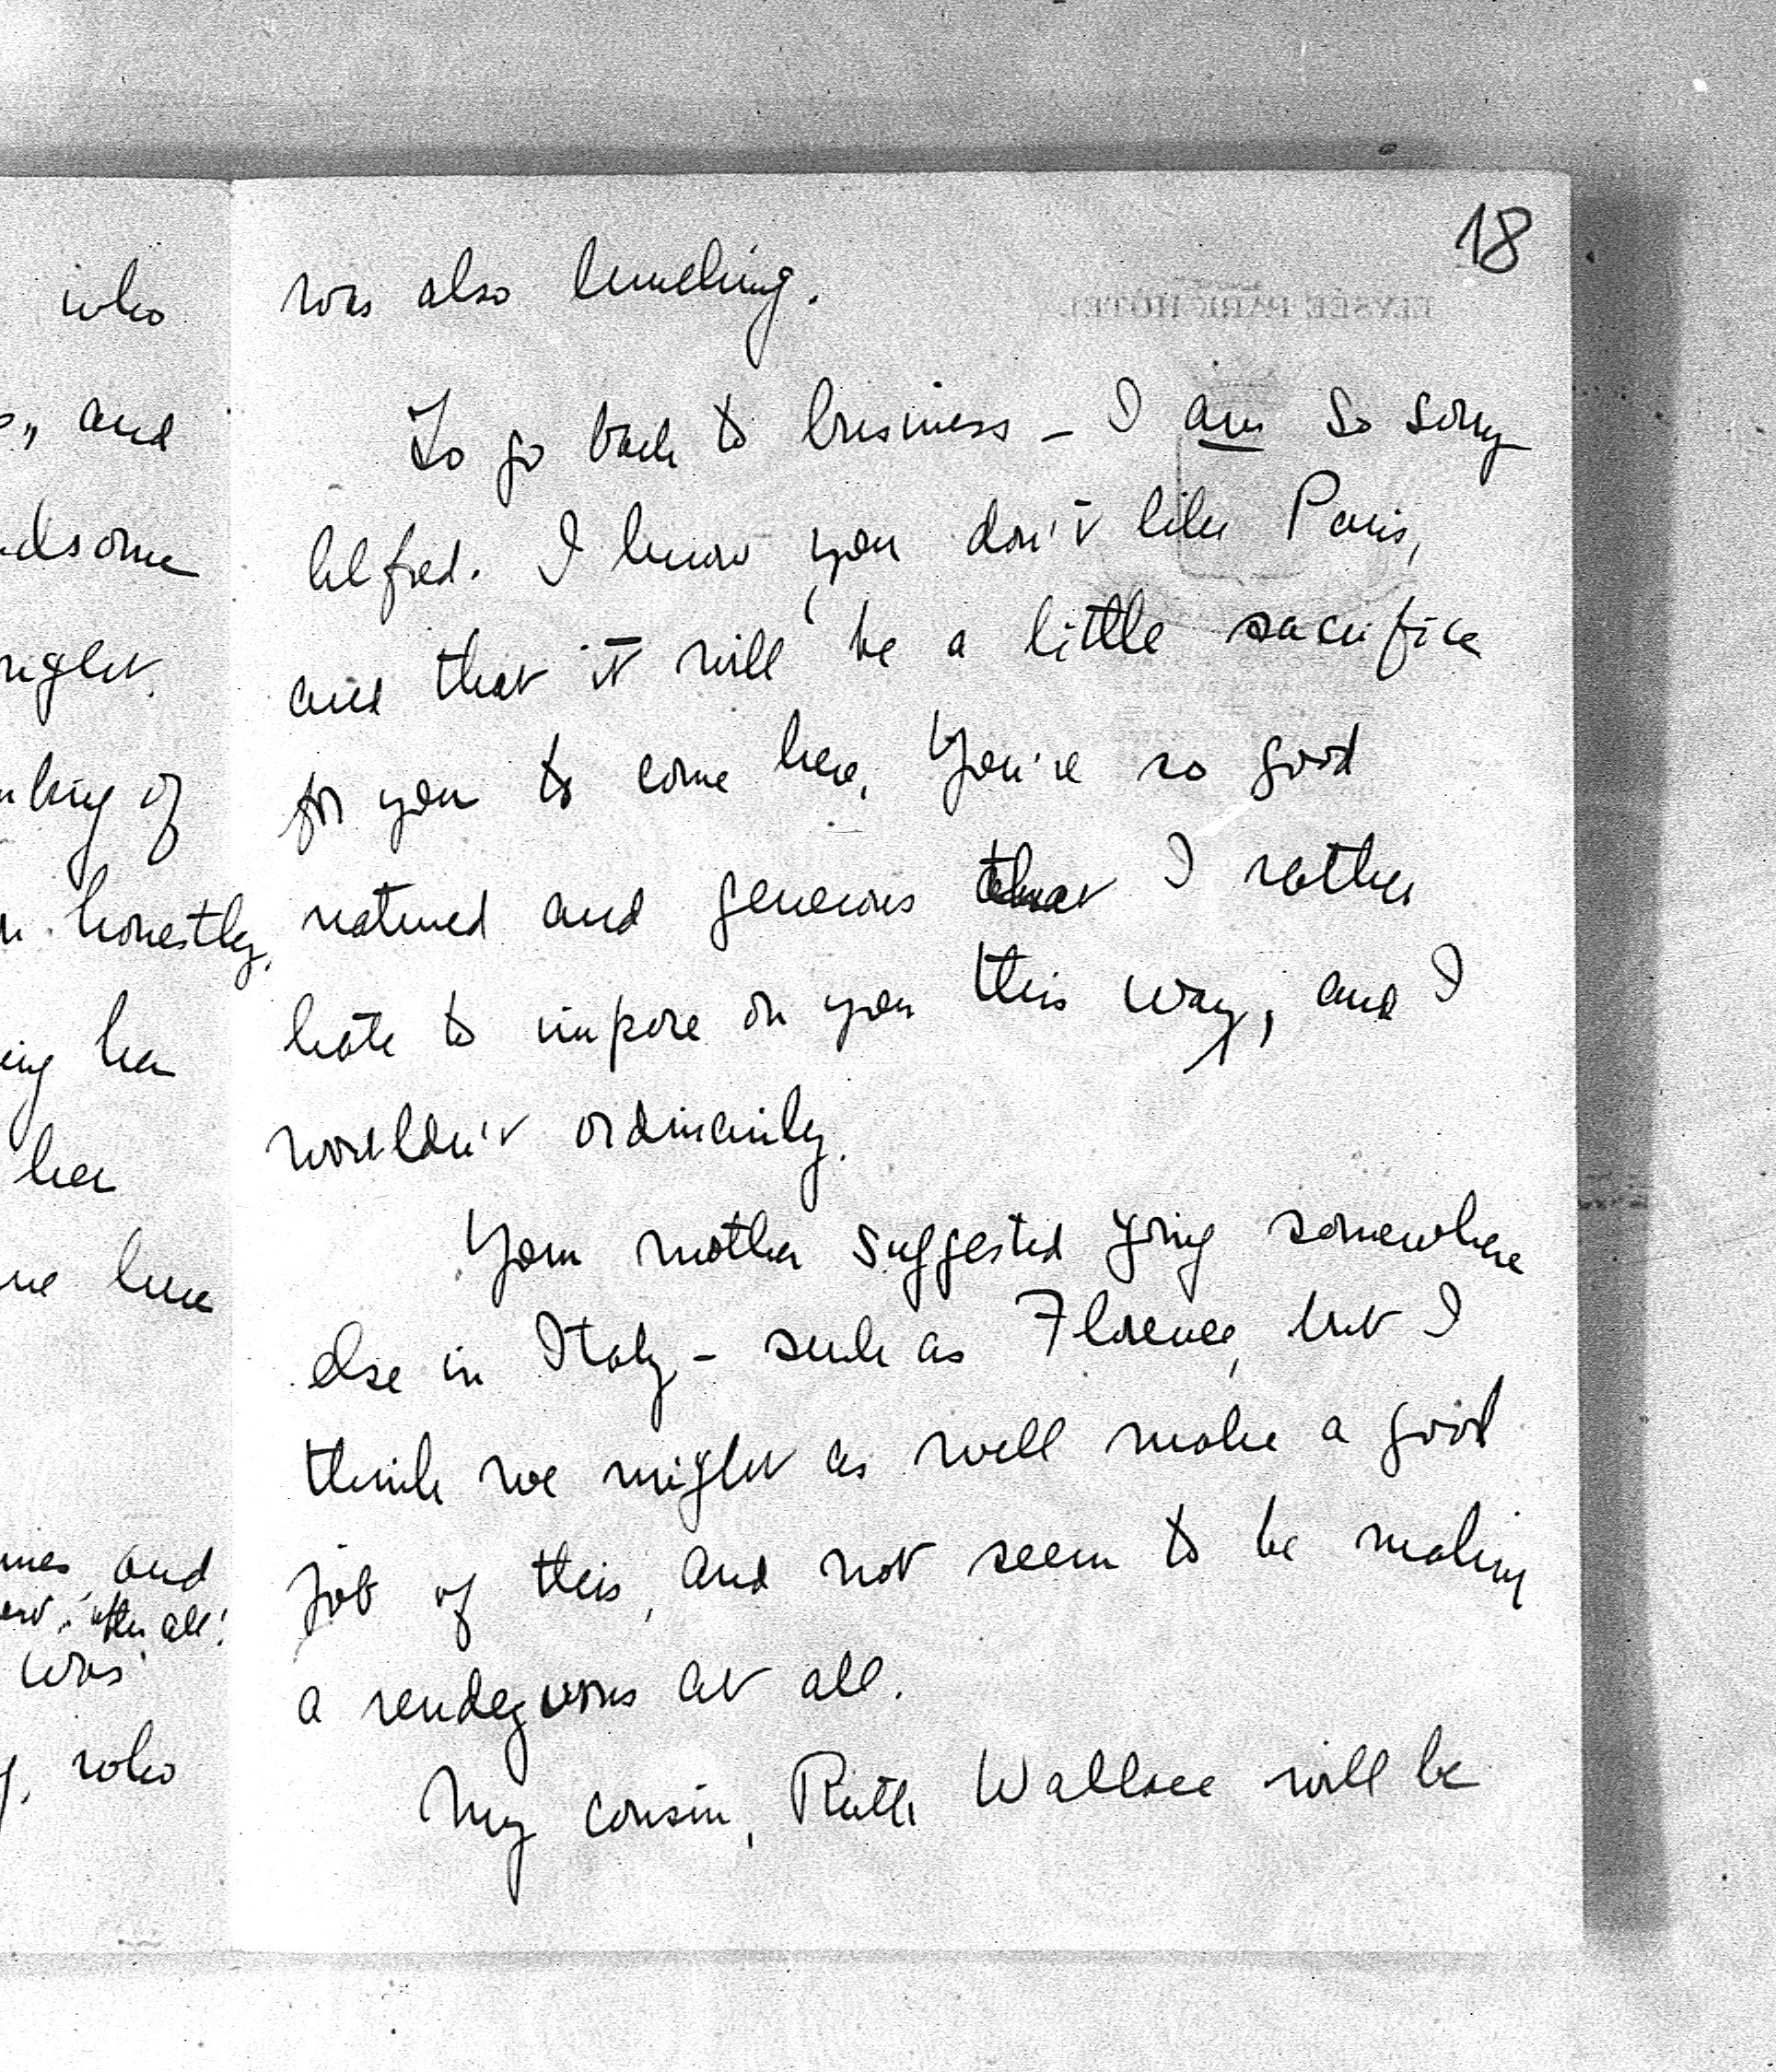 who
and
dsome
night.
nking of
honestly,
ing her
her
me here
and
after all!
was
who
18
ELYSÉE PARK HÔTEL
was also lunching.
To go back to business - I am so sorry
Alfred. I know you don't like Paris,
and that it will be a little sacrifice
for you to come here. You're so good
natured and generous that I rather
hate to impose on you this way, and I
wouldn't ordinarily.
Your mother suggested going somewhere
else in Italy - such as Florence, but I
think we might as well make a good
job of this, and not seem to be making
a rendezvous at all.
My cousin, Ruth Wallace will be